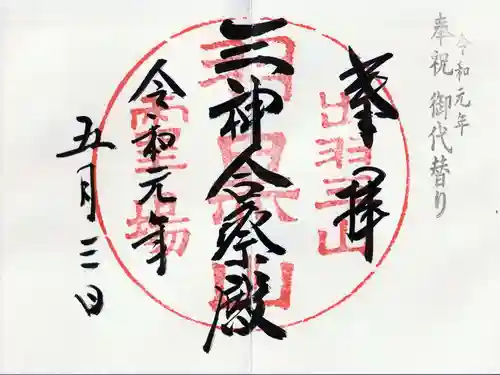 令和元年
奉祝 御代替り
奉拝
出羽三山
三神合祭殿
羽黒山
令和元年
霊場
五月三日